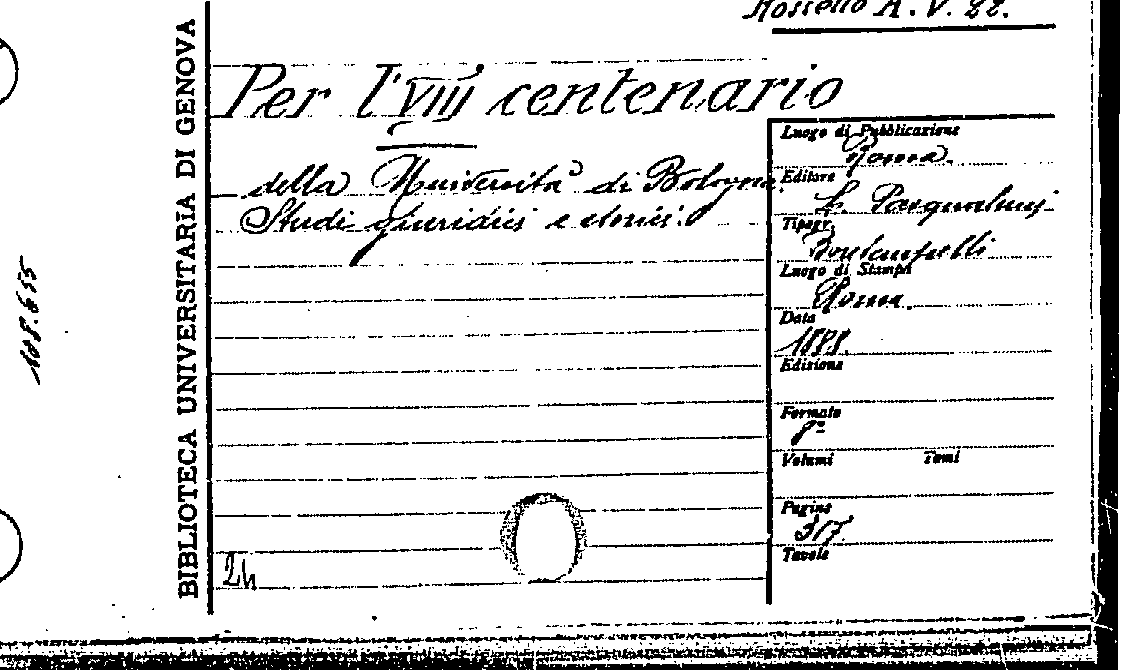 Rossello A. V. 22.
BIBLIOTECA UNIVERSITARIA DI GENOVA
108.655
Per l'VIII centenario
della Università di Bologna.
Studi giuridici e storici.
Luogo di Pubblicazione
Roma.
Editore
L. Pasqualucci
Tipogr.
Luogo di Stampa
Roma.
Data
1888.
Edizione
Formato
8º
Volumi Tomi
Pagine
317.
Tavole